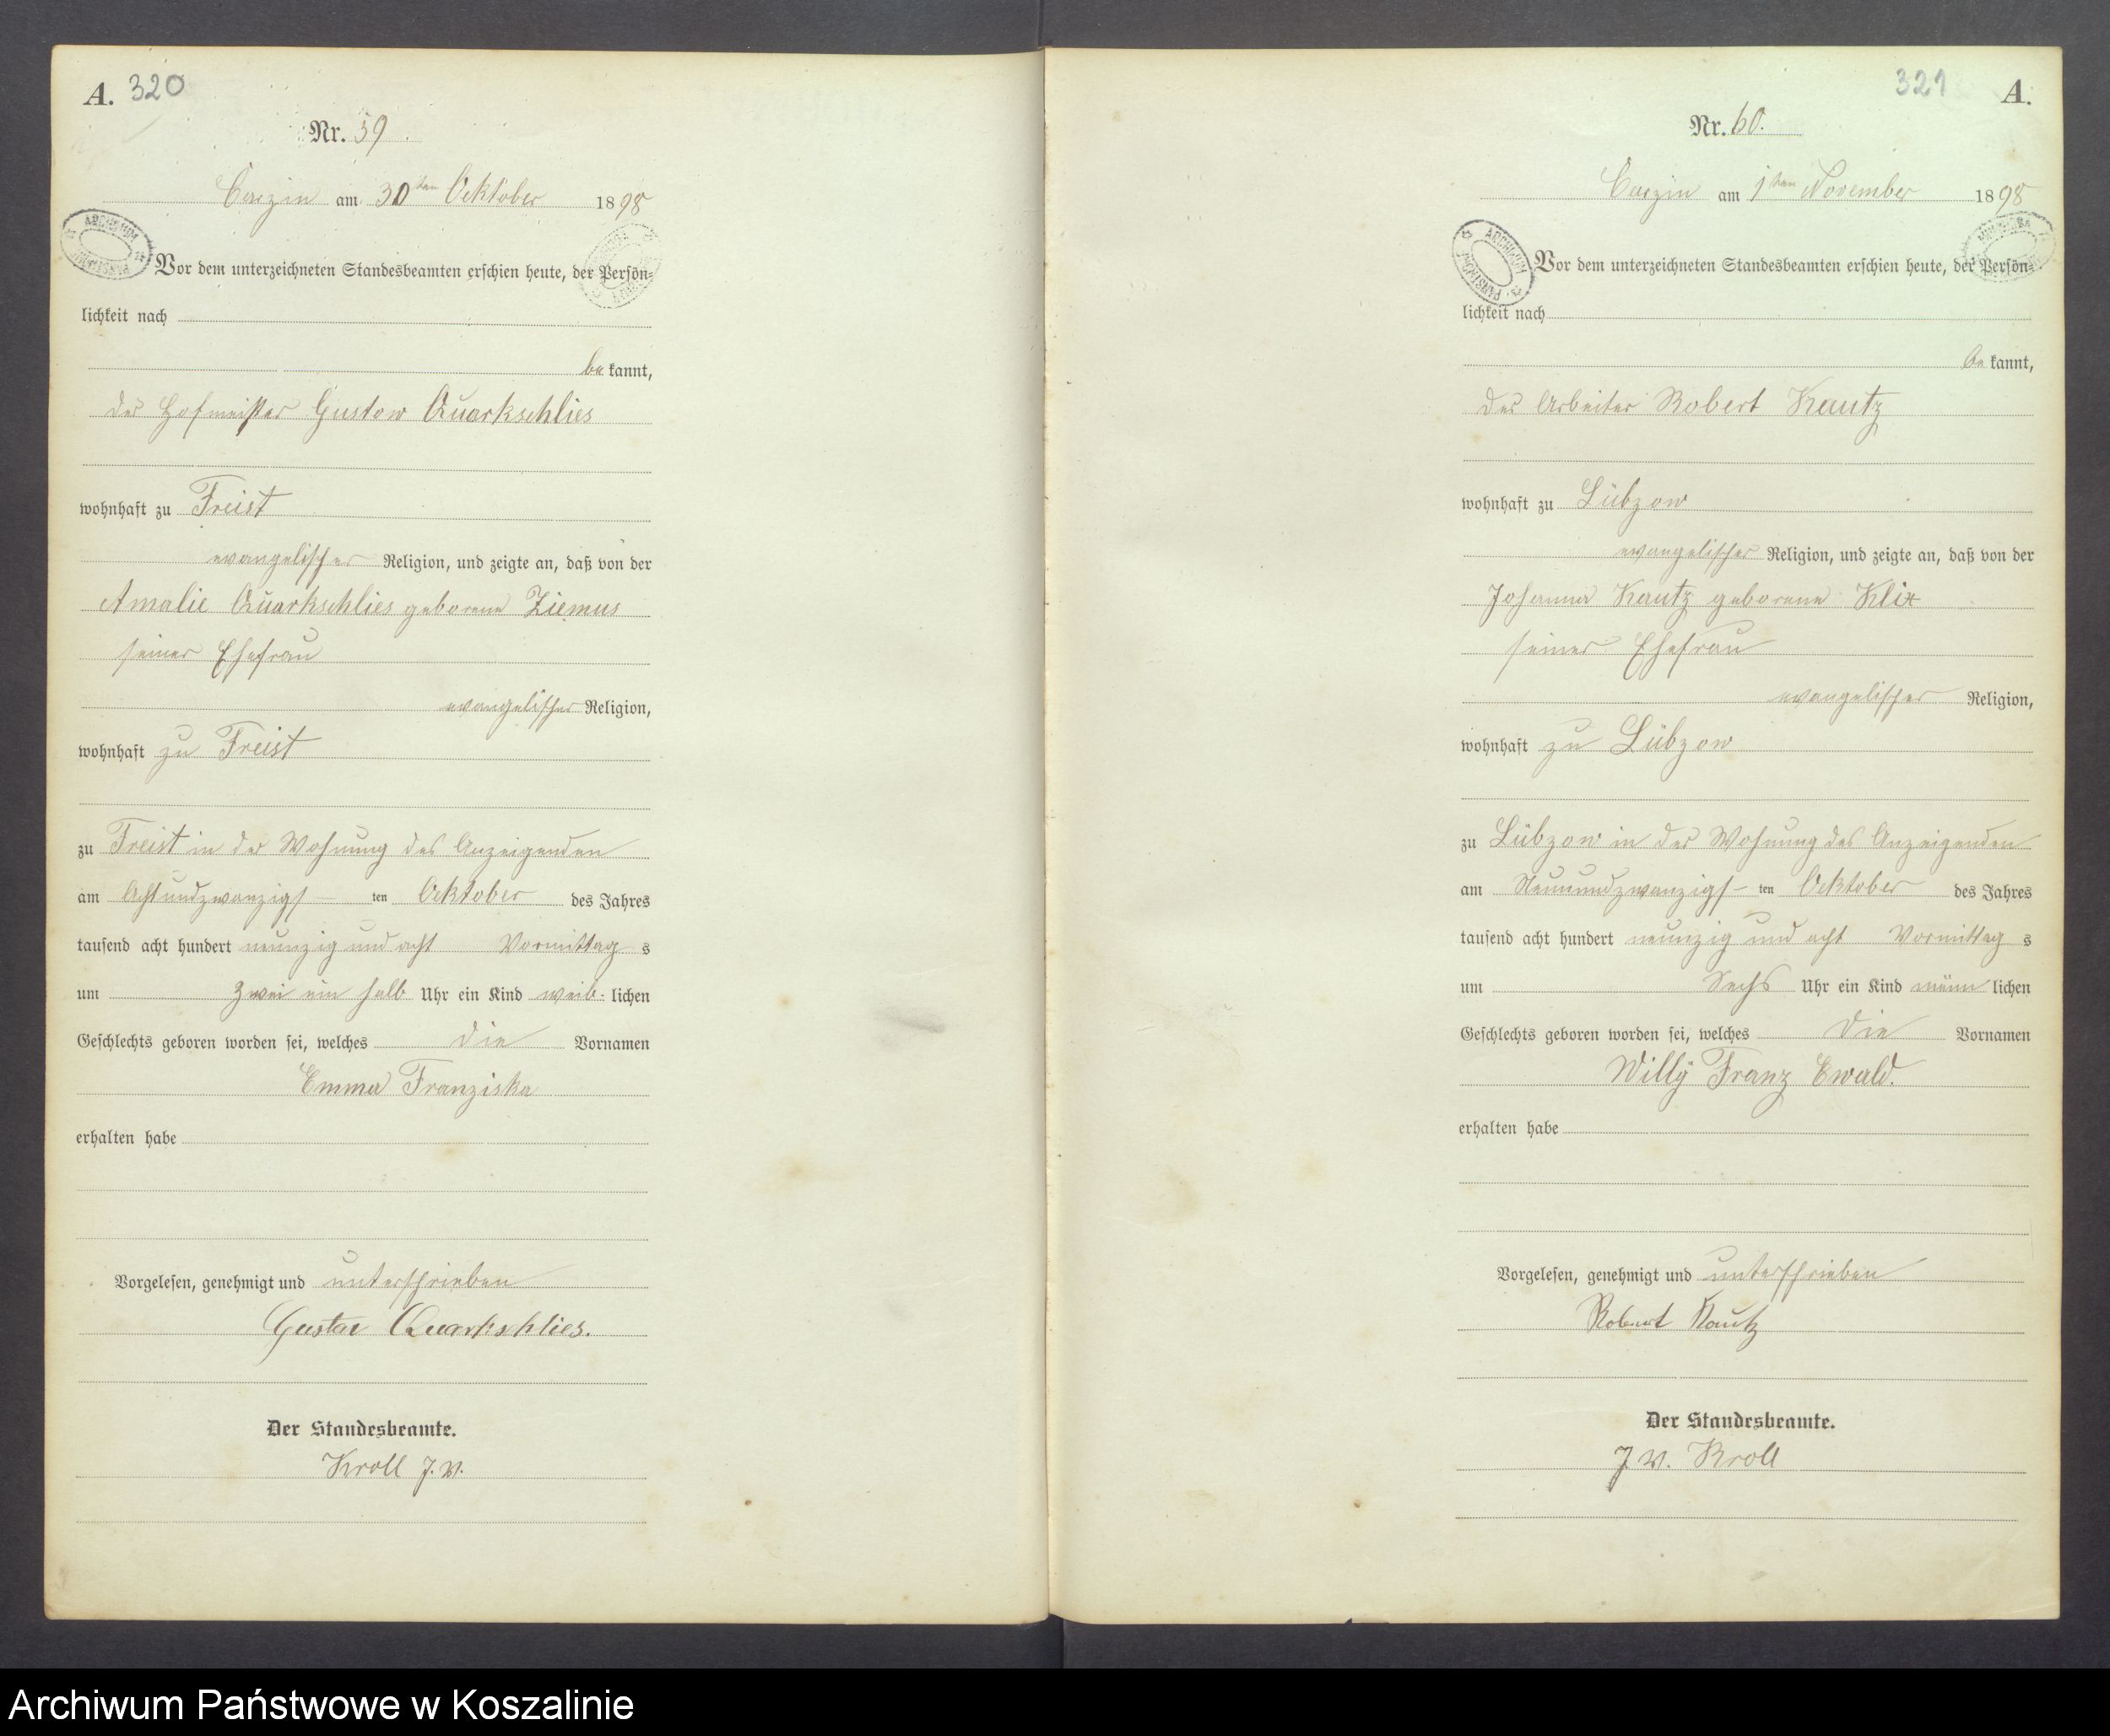 A. 320
Nr. 59.
Carzin am 30ten Oktober 1898
Vor dem unterzeichneten Standesbeamten erschien heute, der Persön=
lichkeit nach
bekannt,
der Hofmeister Gustow Quarkschlies
wohnhaft zu Freist
evangelischer Religion, und zeigte an, daß von der
Amalie Quarkschlies geborene Ziemus
seiner Ehefrau
evangelischer Religion,
wohnhaft zu Freist
zu Freist in der Wohnung des Anzeigenden
am Achtundzwanzigs- ten Oktober des Jahres
tausend acht hundert neunzig und acht Vormittags
um zwei ein halb Uhr ein Kind weib-lichen
Geschlechts geboren worden sei, welches die Vornamen
Emma Franziska
erhalten habe
Vorgelesen, genehmigt und unterschrieben
Gustav Quarkschlies.
Der Standesbeamte.
Kroll J.V.
321 A.
Nr. 60.
Carzin am 1ten November 1898
Vor dem unterzeichneten Standesbeamten erschien heute, der Persön=
lichkeit nach
bekannt,
der Arbeiter Robert Kautz
wohnhaft zu Lübzow
evangelischer Religion, und zeigte an, daß von der
Johanna Kautz geborene Klix
seiner Ehefrau
evangelischer Religion,
wohnhaft zu Lübzow
zu Lübzow in der Wohnung des Anzeigenden
am Neunundzwanzigs- ten Oktober des Jahres
tausend acht hundert neunzig und acht Vormittags
um Sechs Uhr ein Kind männlichen
Geschlechts geboren worden sei, welches die Vornamen
Willy Franz Ewald.
erhalten habe
Vorgelesen, genehmigt und unterschrieben
Robert Kautz
Der Standesbeamte.
J.V. Kroll
Archiwum Państwowe w Koszalinie